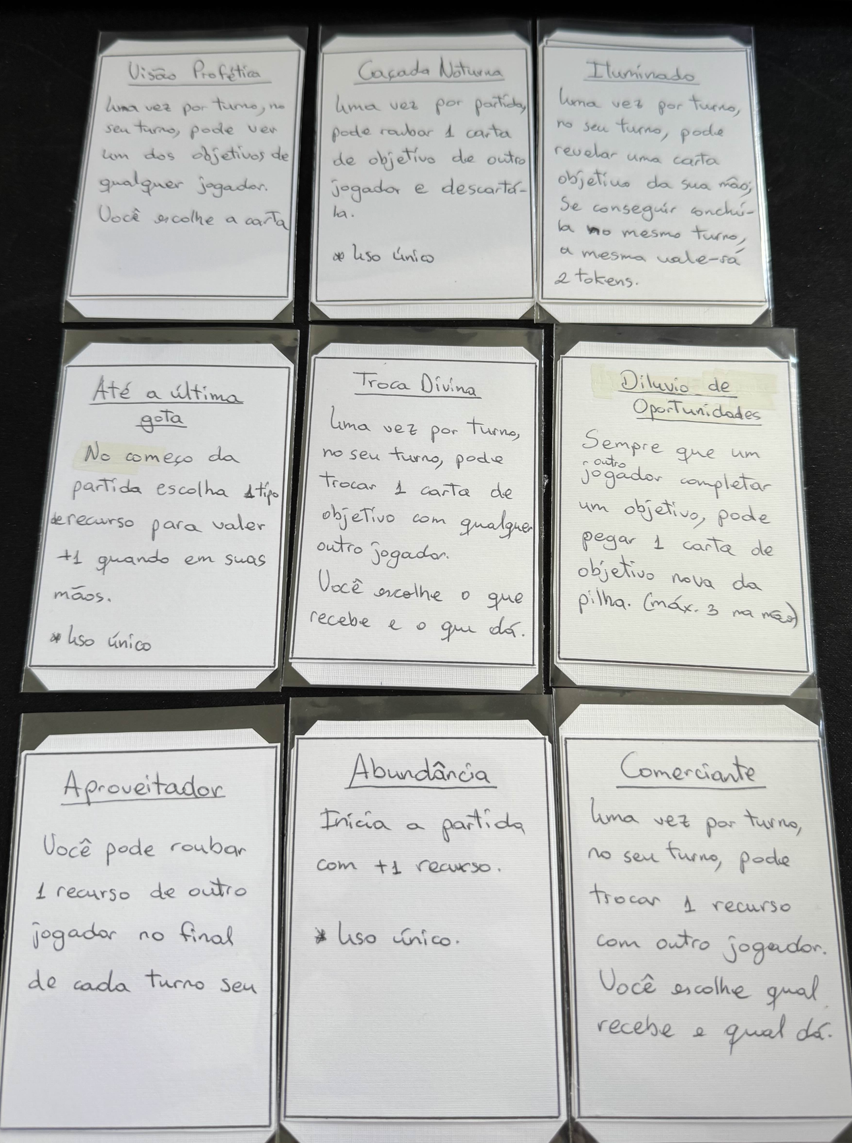 Visão Profética
Uma vez por turno, no
seu turno, pode ver
um dos objetivos de
qualquer jogador.
Você escolhe a carta
Caçada Noturna
Uma vez por partida,
pode roubar 1 carta
de objetivo de outro
jogador e descartá-
la.
* Uso único
Iluminado
Uma vez por turno,
no seu turno, pode
revelar uma carta
objetivo da sua mão;
Se conseguir concluí-
la no mesmo turno,
a mesma vale-rá
2 tokens.
Até a última
gota
No começo da
partida escolha 1 tipo
de recurso para valer
+1 quando em suas
mãos.
* Uso único
Troca Divina
Uma vez por turno,
no seu turno, pode
trocar 1 carta de
objetivo com qualquer
outro jogador.
Você escolhe o que
recebe e o que dá.
Diluvio de
Oportunidades
Sempre que um
outro
jogador completar
um objetivo, pode
pegar 1 carta de
objetivo nova da
pilha. (máx. 3 na mão)
Aproveitador
Você pode roubar
1 recurso de outro
jogador no final
de cada turno seu
Abundância
Inicia a partida
com +1 recurso.
* Uso único.
Comerciante
Uma vez por turno,
no seu turno, pode
trocar 1 recurso
com outro jogador.
Você escolhe qual
recebe e qual dá.